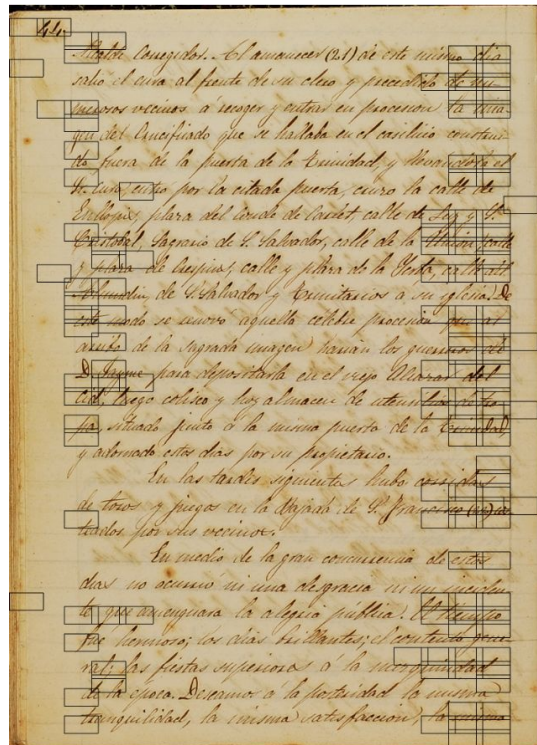 44.
Alcalde Corregidor. Al amanecer (21) de este mismo dia
salio el cura al frente de su clero y precedido de nu-
merosos vecinos á recoger y entrar en procesion la ima-
gen del Crucificado que se hallaba en el casilicio construi-
do fuera de la puerta de la Trinidad, y llevandole el
Sr. cura, entró por la citada puerta, cruzo la calle de
plaza del Conde de Carlet calle de y Sn.
Cristobal, Sagrario de S. Salvador, calle de la Union, calle
y plaza de Crespins, calle y plaza de la Yerba, calle del
Almudin, de S. Salvador y Trinitarios á su iglesia. De
este modo se renovo aquella celebre procesion que al
arribo de la sagrada imagen harian los guerreros de
D. Jayme para depositarla en el viejo Alcazar del
Cid, luego coliseo y hoy almacen de utensilios de tro-
pa, situado junto á la misma puerta de la Trinidad,
y adornado estos dias por su propietario.
En las tardes siguientes hubo corridas
de toros y juegos en la Bajada de Sn. Francisco cos-
teados por sus vecinos.
En medio de la gran concurrencia de estos
dias no ocurrio ni una desgracia ni un inciden-
te que amenguara la alegria pública. El tiempo
fue hermoso; los dias brillantes; el contento gene-
ral; las fiestas superiores á la mezquindad
de la epoca. Deseamos á la posteridad la misma
tranquilidad, la misma satisfaccion, la misma